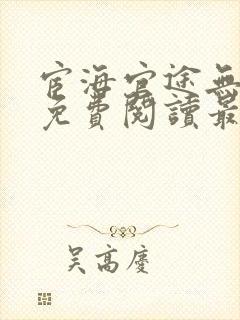 宦海官途無
免費閱讀最
吳高慶